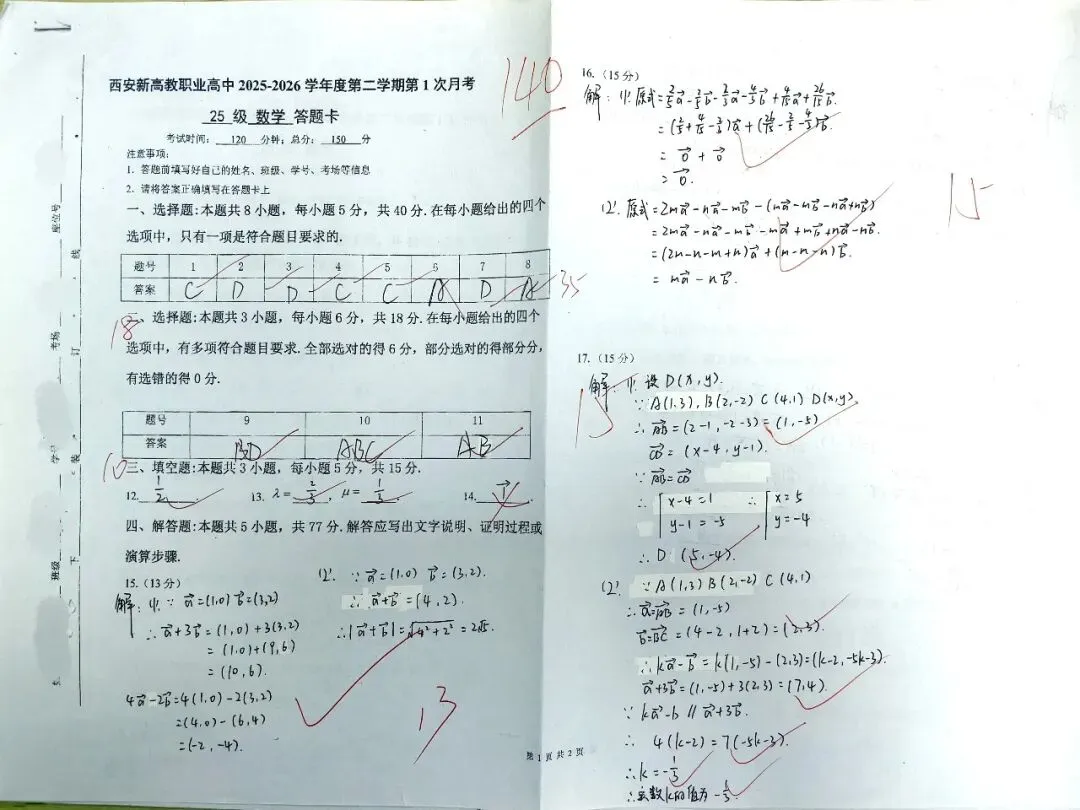 西安新高教职业高中 2025-2026 学年度第二学期第 1 次月考
25 级 数学 答题卡
140
考试时间: 120 分钟; 总分: 150 分
注意事项:
1. 答题前填写好自己的姓名、班级、学号、考场等信息
2. 请将答案正确填写在答题卡上
一、选择题:本题共 8 小题, 每小题 5 分, 共 40 分. 在每小题给出的四个
选项中, 只有一项是符合题目要求的.
题号 1 2 3 4 5 6 7 8
答案 C D D C C A D A 35
18
二、选择题:本题共 3 小题, 每小题 6 分, 共 18 分. 在每小题给出的四个
选项中, 有多项符合题目要求. 全部选对的得 6 分, 部分选对的得部分分,
有选错的得 0 分.
题号 9 10 11
答案 BD ABC AB
10
三、填空题:本题共 3 小题, 每小题 5 分, 共 15 分.
12. 1/2 . 13. λ= 2/3 , μ= 1/3 . 14.
四、解答题:本题共 5 小题, 共 77 分. 解答应写出文字说明、证明过程或
演算步骤.
15. (13 分)
解: (1). ∵ a⃗=(1,0) b⃗=(3,2)
∴ a⃗+3b⃗=(1,0)+3(3,2)
=(1,0)+(9,6)
=(10,6).
4a⃗-2b⃗=4(1,0)-2(3,2)
=(4,0)-(6,4)
=(-2,-4).
(2). ∵ a⃗=(1,0) b⃗=(3,2).
∴ a⃗+b⃗=(4,2).
∴|a⃗+b⃗|=√4²+2²=2√5.
13
座位号
考场
学号
班级
线
订
装
下
第 1 页 共 2 页
16. (15 分)
解: (1). 原式=2/5a⃗-2/5b⃗-2/3a⃗-4/3b⃗+4/15a⃗+26/15b⃗.
=(2/5+4/15-2/3)a⃗+(26/15-2/5-4/3)b⃗.
=0⃗+0⃗
=0⃗.
(2). 原式=2ma⃗-na⃗-mb⃗-(ma⃗-mb⃗-na⃗+nb⃗)
=2ma⃗-na⃗-mb⃗-ma⃗+mb⃗+na⃗-nb⃗.
=(2m-n-m+n)a⃗+(m-m-n)b⃗.
=ma⃗-nb⃗.
15
17. (15 分)
15
解: (1). 设 D(x,y).
∵ A(1,3), B(2,-2) C(4,1) D(x,y)
∴ AB⃗=(2-1,-2-3)=(1,-5)
CD⃗=(x-4,y-1).
∵ AB⃗=CD⃗
∴ { x-4=1 ∴ { x=5
y-1=-5 y=-4
∴ D (5,-4).
(2). ∵ A(1,3) B(2,-2) C(4,1)
∴ a⃗=AB⃗=(1,-5)
b⃗=BC⃗=(4-2,1+2)=(2,3).
∴ka⃗-b⃗=k(1,-5)-(2,3)=(k-2,-5k-3).
a⃗+3b⃗=(1,-5)+3(2,3)=(7,4).
∵ ka⃗-b⃗ // a⃗+3b⃗.
∴ 4(k-2)=7(-5k-3).
∴k=-1/3
∴实数k的值为-1/3